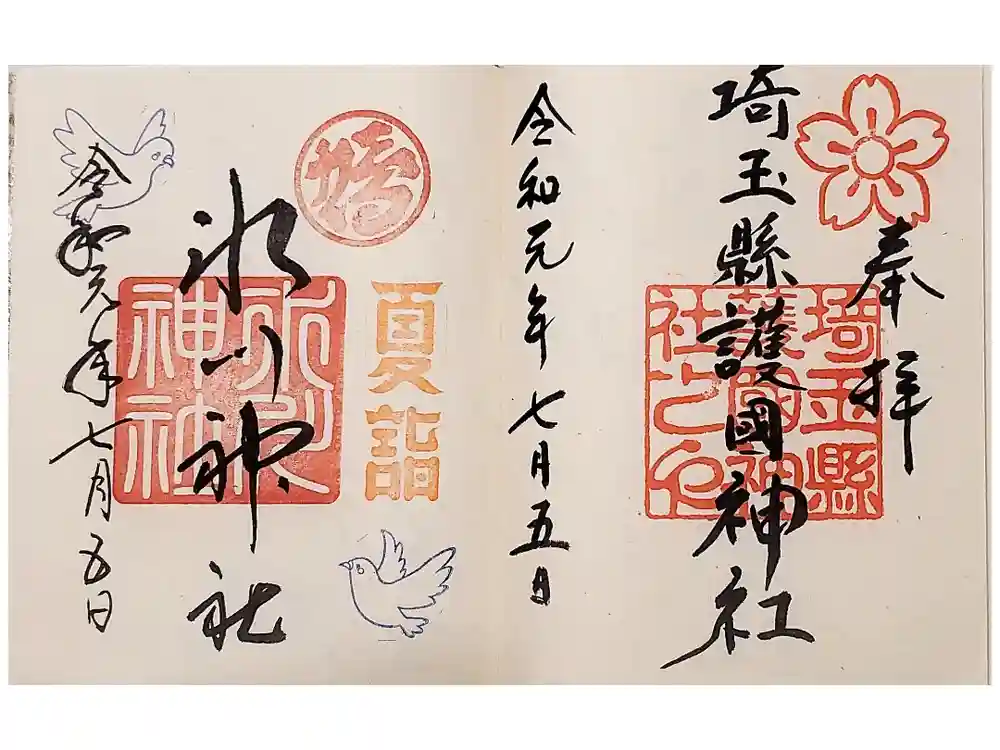 奉拝
埼玉縣護國神社
埼玉縣護國神社之印
令和元年七月五日
夏詣
氷川神社
氷川神社
令和元年七月五日